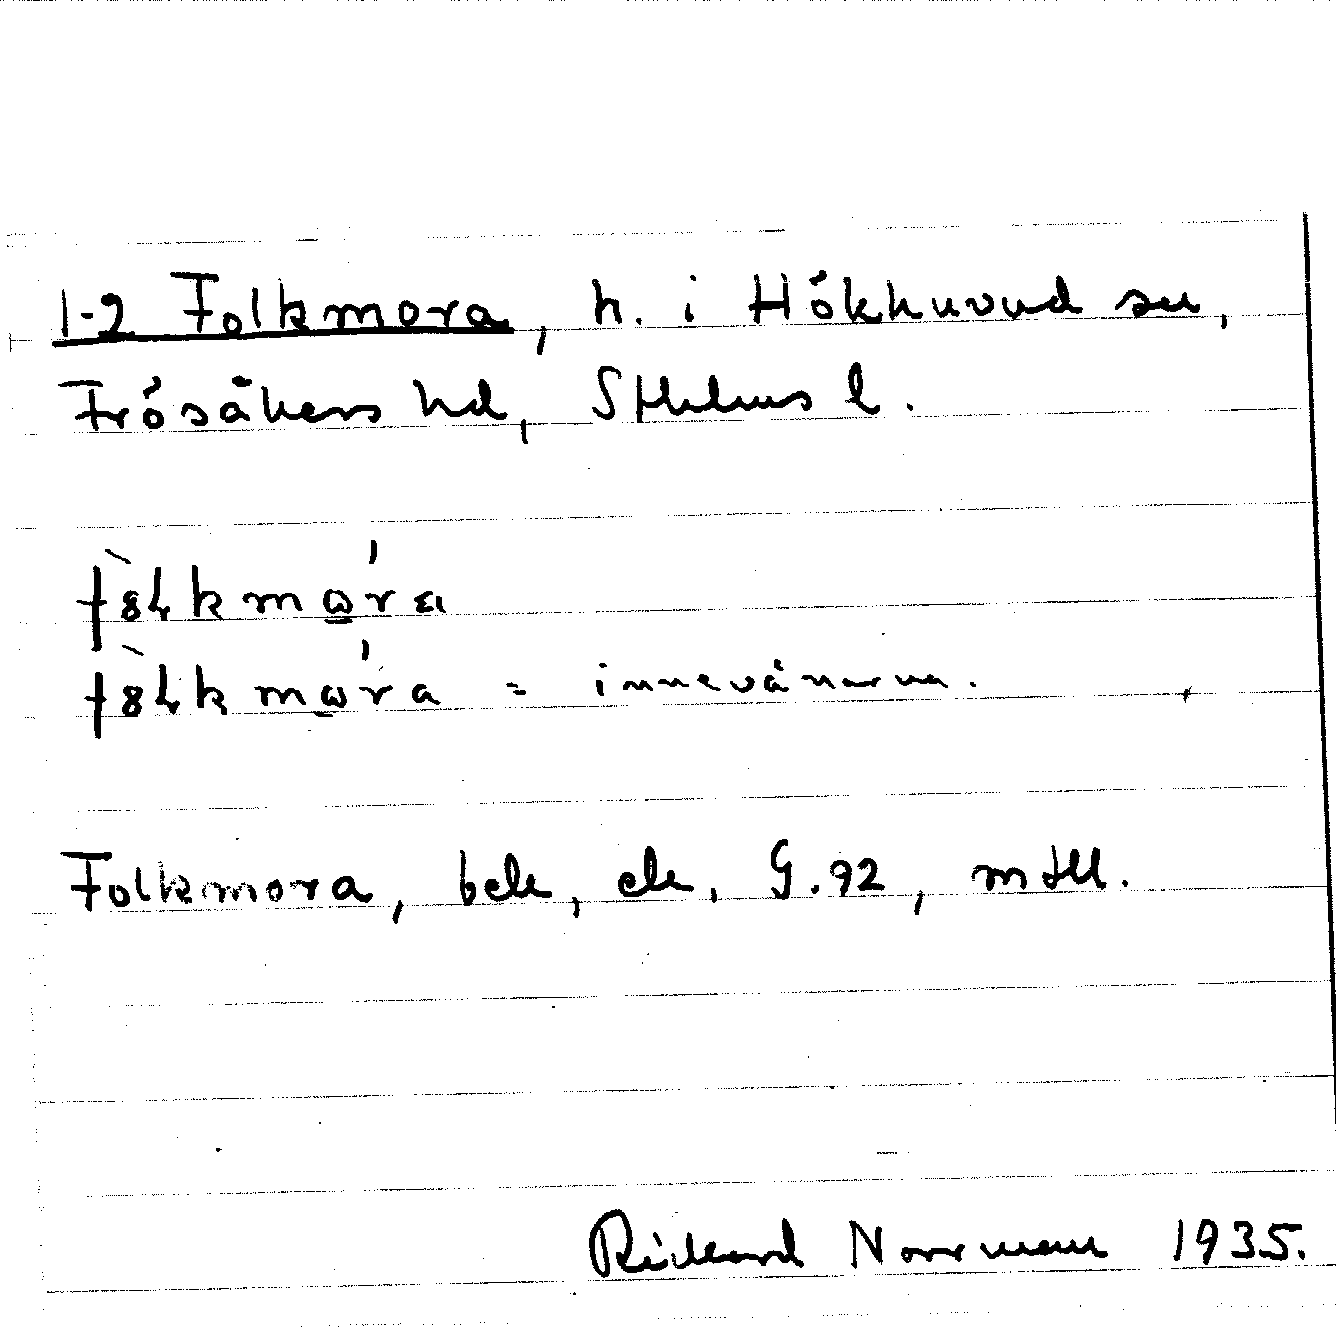 1-2 Folkmora, h. i Hökhuvud sn,
Frösåkers hd, Sthlms l.
fȣ̀Lkmωŕa
fȣ̀Lkmωŕa = innevånarna.
Folkmora, bek, ek, G. 92, mtll.
Rickard Norrman 1935.